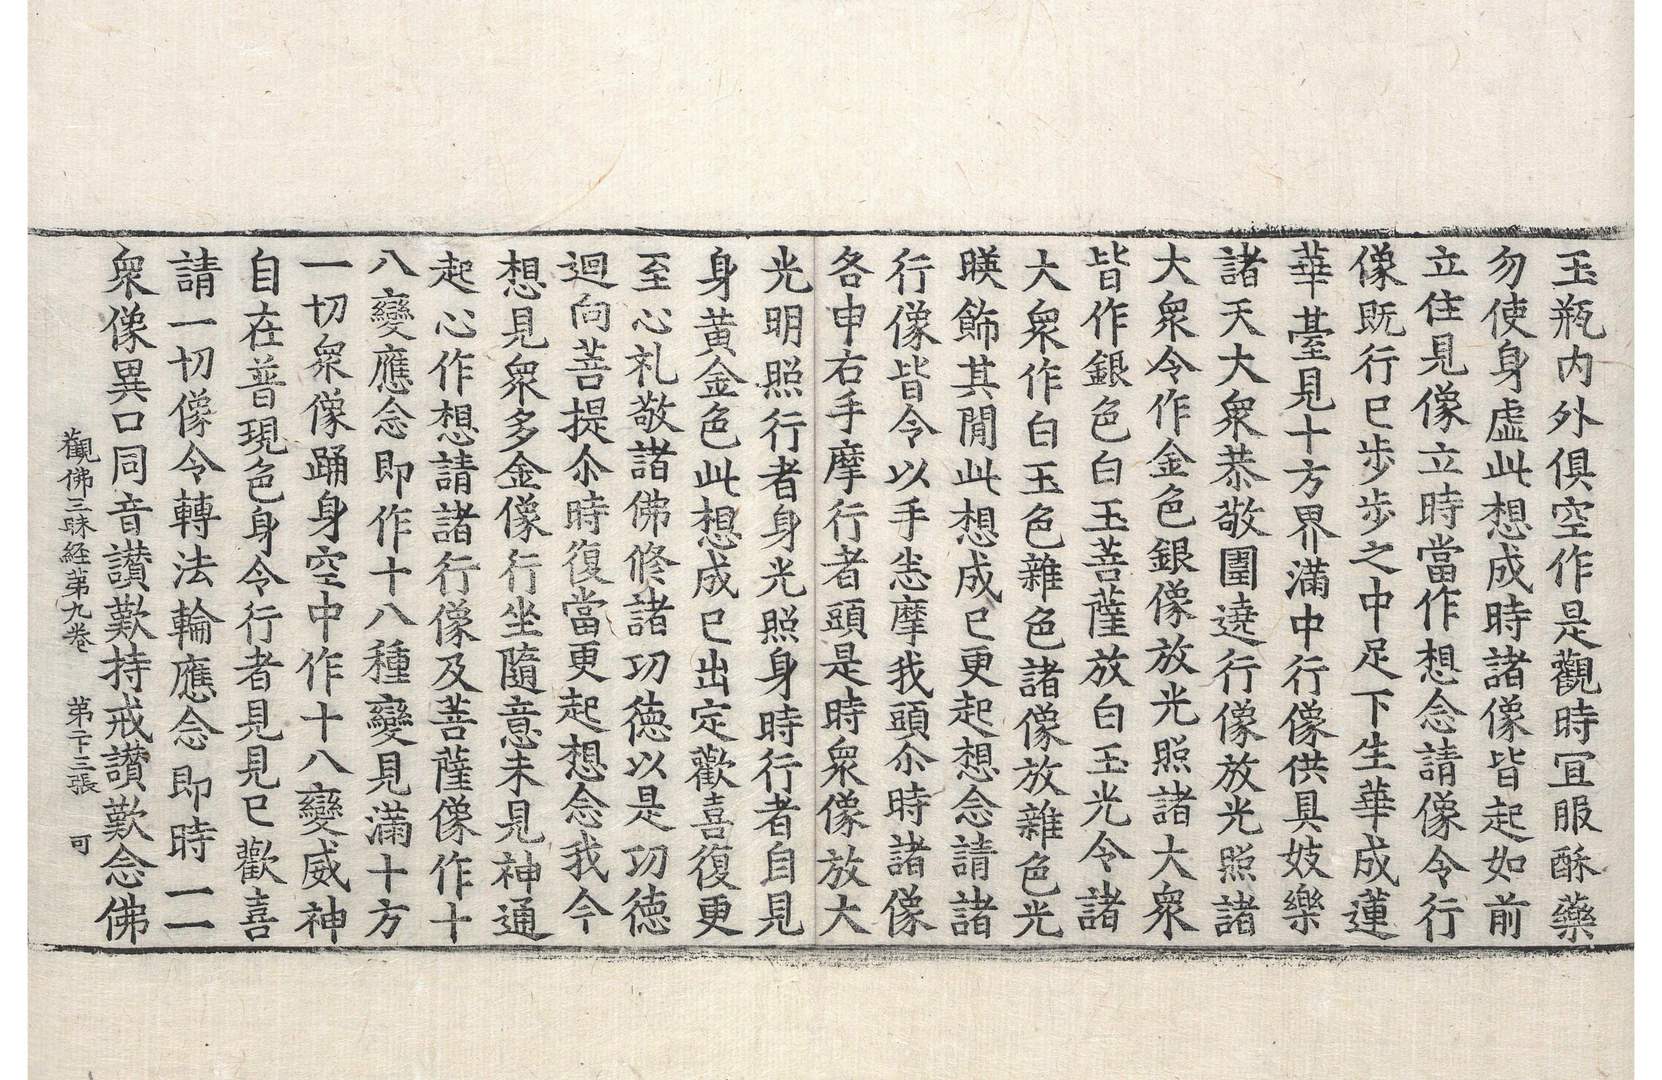 玉瓶内外俱空作是觀時冝服酥藥
勿使身虛此想成時諸像皆起如前
立住見像立時當作想念請像令行
像既行已步步之中足下生華成蓮
華臺見十方界滿中行像供具妓樂
諸天大衆恭敬圍遶行像放光照諸
大衆令作金色銀像放光照諸大衆
皆作銀色白玉菩薩放白玉光令諸
大衆作白玉色雜色諸像放雜色光
暎飾其閒此想成已更起想念請諸
行像皆令以手㤙摩我頭尒時諸像
各申右手摩行者頭是時衆像放大
光明照行者身光照身時行者自見
身黄金色此想成已出定歡喜復更
至心礼敬諸佛修諸功德以是功德
迴向菩提尒時復當更起想念我今
想見衆多金像行坐隨意未見神通
起心作想請諸行像及菩薩像作十
八變應念即作十八種變見滿十方
一切衆像踊身空中作十八變威神
自在普現色身令行者見見已歡喜
請一切像令轉法輪應念即時一一
衆像異口同音讃歎持戒讃歎念佛
觀佛三昧経苐九卷 苐二十三張 可